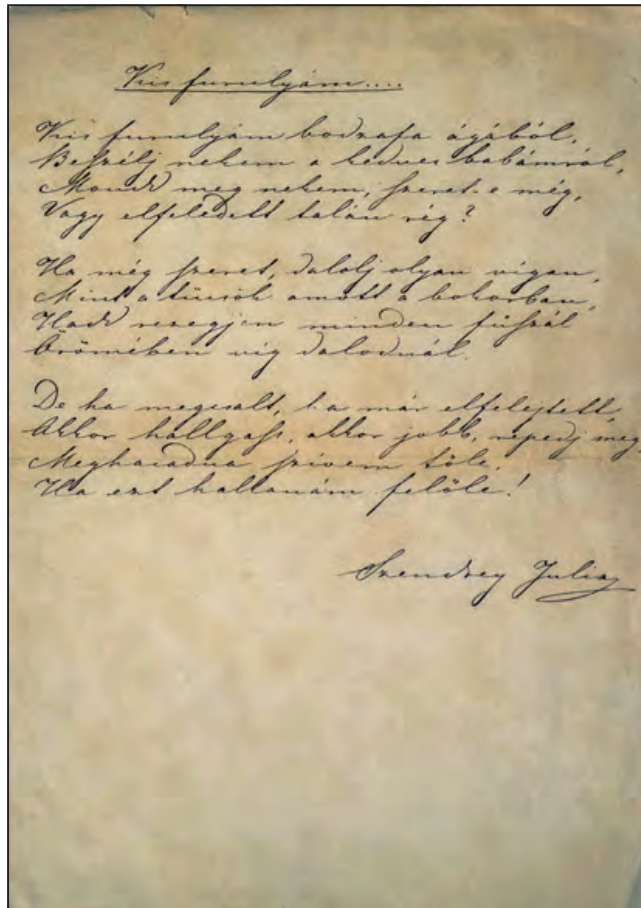 Kis furulyám....
Kis furulyám bodzafa ágából,
Beszélj nekem a kedves babámról,
Mondd meg nekem, szeret-e még,
Vagy elfeledett talán rég?
Ha még szeret, dalolj olyan vigan,
Mint a tücsök amott a bokorban,
Hadd rezegjen minden fűszál
Örömében vig dalodnál.
De ha megcsalt, ha már elfelejtett,
Akkor hallgass, akkor jobb, repedj meg,
Meghasadna szivem tőle,
Ha ezt hallanám felőle!
Szendrey Julia